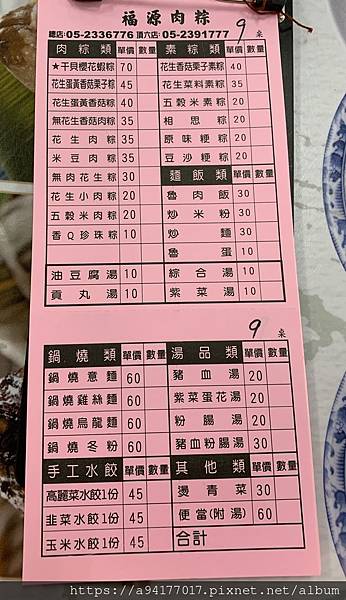 福源肉粽
總店:05-2336776 頂六店:05-2391777
9 桌
肉粽類 單價 數量
★干貝櫻花蝦粽 70
花生蛋黃香菇栗子粽 45
花生蛋黃香菇粽 40
無花生香菇肉粽 35
花生肉粽 35
米豆肉粽 35
無肉花生粽 30
花生小肉粽 20
五穀米肉粽 20
香Q珍珠粽 10
油豆腐湯 10
貢丸湯 10
素粽類 單價 數量
花生香菇栗子素粽 40
花生菜料素粽 35
五穀米素粽 20
相思粽 20
原味粳粽 20
豆沙粳粽 20
麵飯類 單價 數量
魯肉飯 30
炒米粉 30
炒麵 30
魯蛋 10
綜合湯 10
紫菜湯 10
9 桌
鍋燒類 單價 數量
鍋燒意麵 60
鍋燒雞絲麵 60
鍋燒烏龍麵 60
鍋燒冬粉 60
手工水餃 單價 數量
高麗菜水餃1份 45
韭菜水餃1份 45
玉米水餃1份 45
湯品類 單價 數量
豬血湯 20
紫菜蛋花湯 20
粉腸湯 20
豬血粉腸湯 30
其他類 單價 數量
燙青菜 30
便當(附湯) 60
合計
https://a94177017.pixnet.net/album